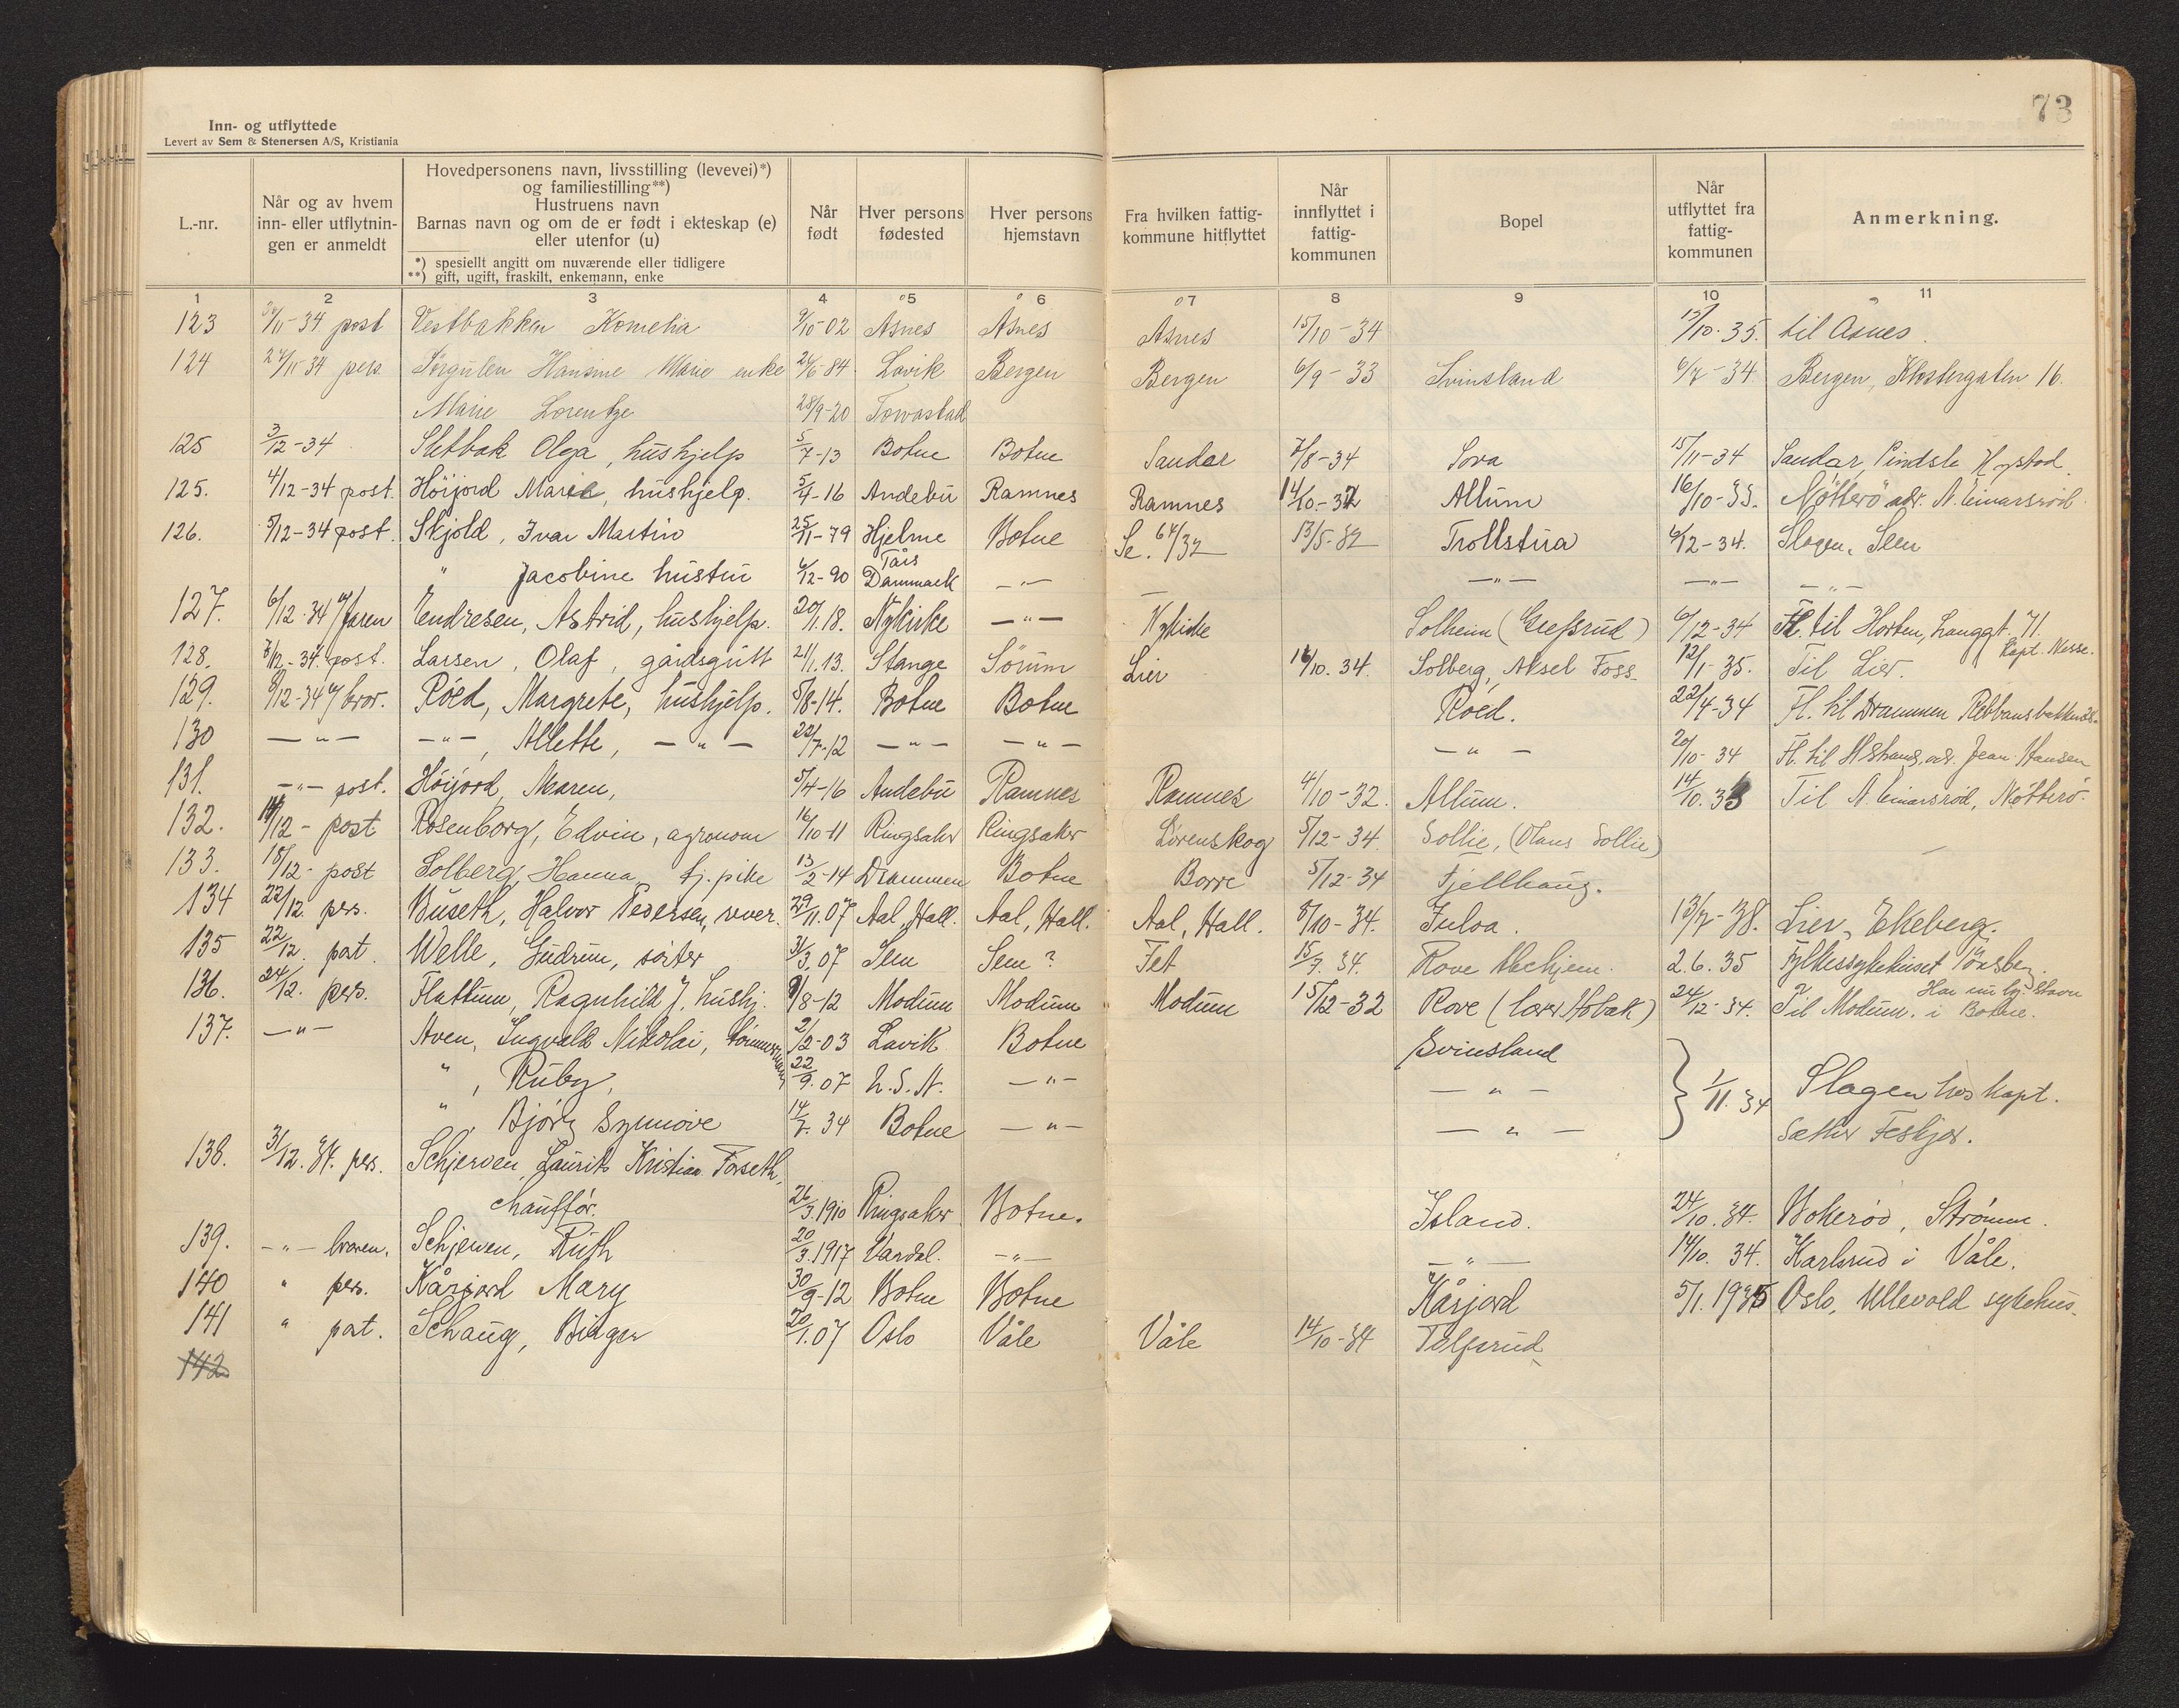 73
Inn- og utflyttede
Levert av Sem & Stenersen A/S, Kristiania
L.-nr.
Når og av hvem inn- eller utflytnin-gen er anmeldt
Hovedpersonens navn, livsstilling (levevei)*) og familiestilling**)
Hustruens navn
Barnas navn og om de er født i ekteskap (e) eller utenfor (u)
*) spesiellt angitt om nuværende eller tidligere
**) gift, ugift, fraskilt, enkemann, enke
Når født
Hver persons fødested
Hver persons hjemstavn
Fra hvilken fattig-kommune hitflyttet
Når innflyttet i fattig-kommunen
Bopel
Når utflyttet fra fattig-kommunen
Anmerkning.
1 2 3 4 5 6 7 8 9 10 11
123 /11-34 post Vestbakken Kornelia 9/10-02 Åsnes Åsnes Åsnes 15/10-34 15/10-35. til Åsnes.
124 27/11-34 pers. Sørgulen Hansine Marie enke 24/6-84 Lavik Bergen Bergen 6/9-33 Svinsland 6/7-34 Bergen, Klostergaten 16.
Marie Lorentze 28/9-20 Torvastad
125 3/12-34 Sletbak Olga, hushjelp 5/7-13 Botne Botne Sandar 7/8-34 Sova 15/11-34 Sandar
125. 4/12-34 post. Høijord Marie, hushjelp. 5/4-16 Andebu Ramnes Ramnes 14/10-32 Allum 16/10-33. Nøtterø adr. N. Einarsrød.
126. 5/12-34 post. Skjold, Ivar Martin 25/11-79 Hjelme Botne Se. 64/32 13/5-32 Trollstua 6/12-34. Slagen, Seen
" Jacobine hustru 6/12-90 Tårs Danmark -"- -"- -"- -"-
127. 6/12-34 v/faren Endresen, Astrid, hushjelp. 20/1.18. Nykirke -"- Nykirke Solheim (Grefsrud) 6/12-34 Fl. til Horten, Langgt. 71. Kapt. Nesse.
128. 7/12-34 post. Larsen, Olaf, gårdsgutt 21/1.13. Stange Sørum Lier 16/10.34. Solberg, Aksel Foss. 12/1-35. Til Lier.
129. 8/12-34 v/bror. Røed, Margrete, hushjelp. 5/8-14. Botne Botne Røed. 22/4-34 Fl. til Drammen
130 -"- -"-, Allette, -"- 22/7-12 -"- -"- -"- 20/10-34 Fl. til Jean Hansen
131. -"- post. Høijord, Maren, 5/4-16 Andebu Ramnes Ramnes 4/10-32. Allum. 14/10.33 Til N. Einarsrød, Nøtterø.
132. 14/12- post Rosenborg, Edvin, agronom 16/10-11 Ringsaker Ringsaker Lørenskog 5/12-34. Sollie, (Olaus Sollie)
133. 18/12- post Solberg, Hanna tj. pike 13/2-14 Drammen Botne Borre 5/12-34 Fjellhaug.
134 22/12. pers. Buseth, Halvor Pedersen, sveiser. 29/11.07 Aal, Hall. Aal, Hall. Aal, Hall. 8/10-34. Fulva. 13/7-38. Lier, Ekeberg.
135 22/12. post. Welle, Gudrun, søster 31/3.07 Sem Sem? Fet 15/7.34. Rove Aldehjem. 2.6.35 Fylkessykehuset Tønsberg.
136. 24/12. pers. Flattum, Ragnhild J. hushj. 9/8-12 Modum Modum Modum 15/12-32 Rove (lærer Holbæk) 24/12-34. Til Modum. Har nu lg. Stavn i Botne.
137. -"- Aven, Ingvald Nikolai, tømmermann 2/2-03 Lavik Botne Svinsland
", Ruby, 22/9.07 U.S.A. -"- -"- } 1/11.34 Slagen hos kapt.
", Bjørg Synnøve 14/7.34 Botne -"- -"- Sæther Feskjær.
138. 31/12.34. pers. Schjerven, Laurits Kristian Forseth,
chauffør. 26/3.1910 Ringsaker Botne. Island. 24/10.34. Bokerød, Strømm.
139. -"- broren. Schjerven, Ruth 20/3.1917 Vardal. -"- -"- 14/10.34. Karlsrud i Våle.
140 " pers. Kårjord Mary 30/9-12 Botne Botne Kårjord 5/1.1935 Oslo, Ullevold sykehus.
141 " post. Schaug, Birger 20/1.07 Oslo Våle Våle 14/10-34 Tolfsrud
142